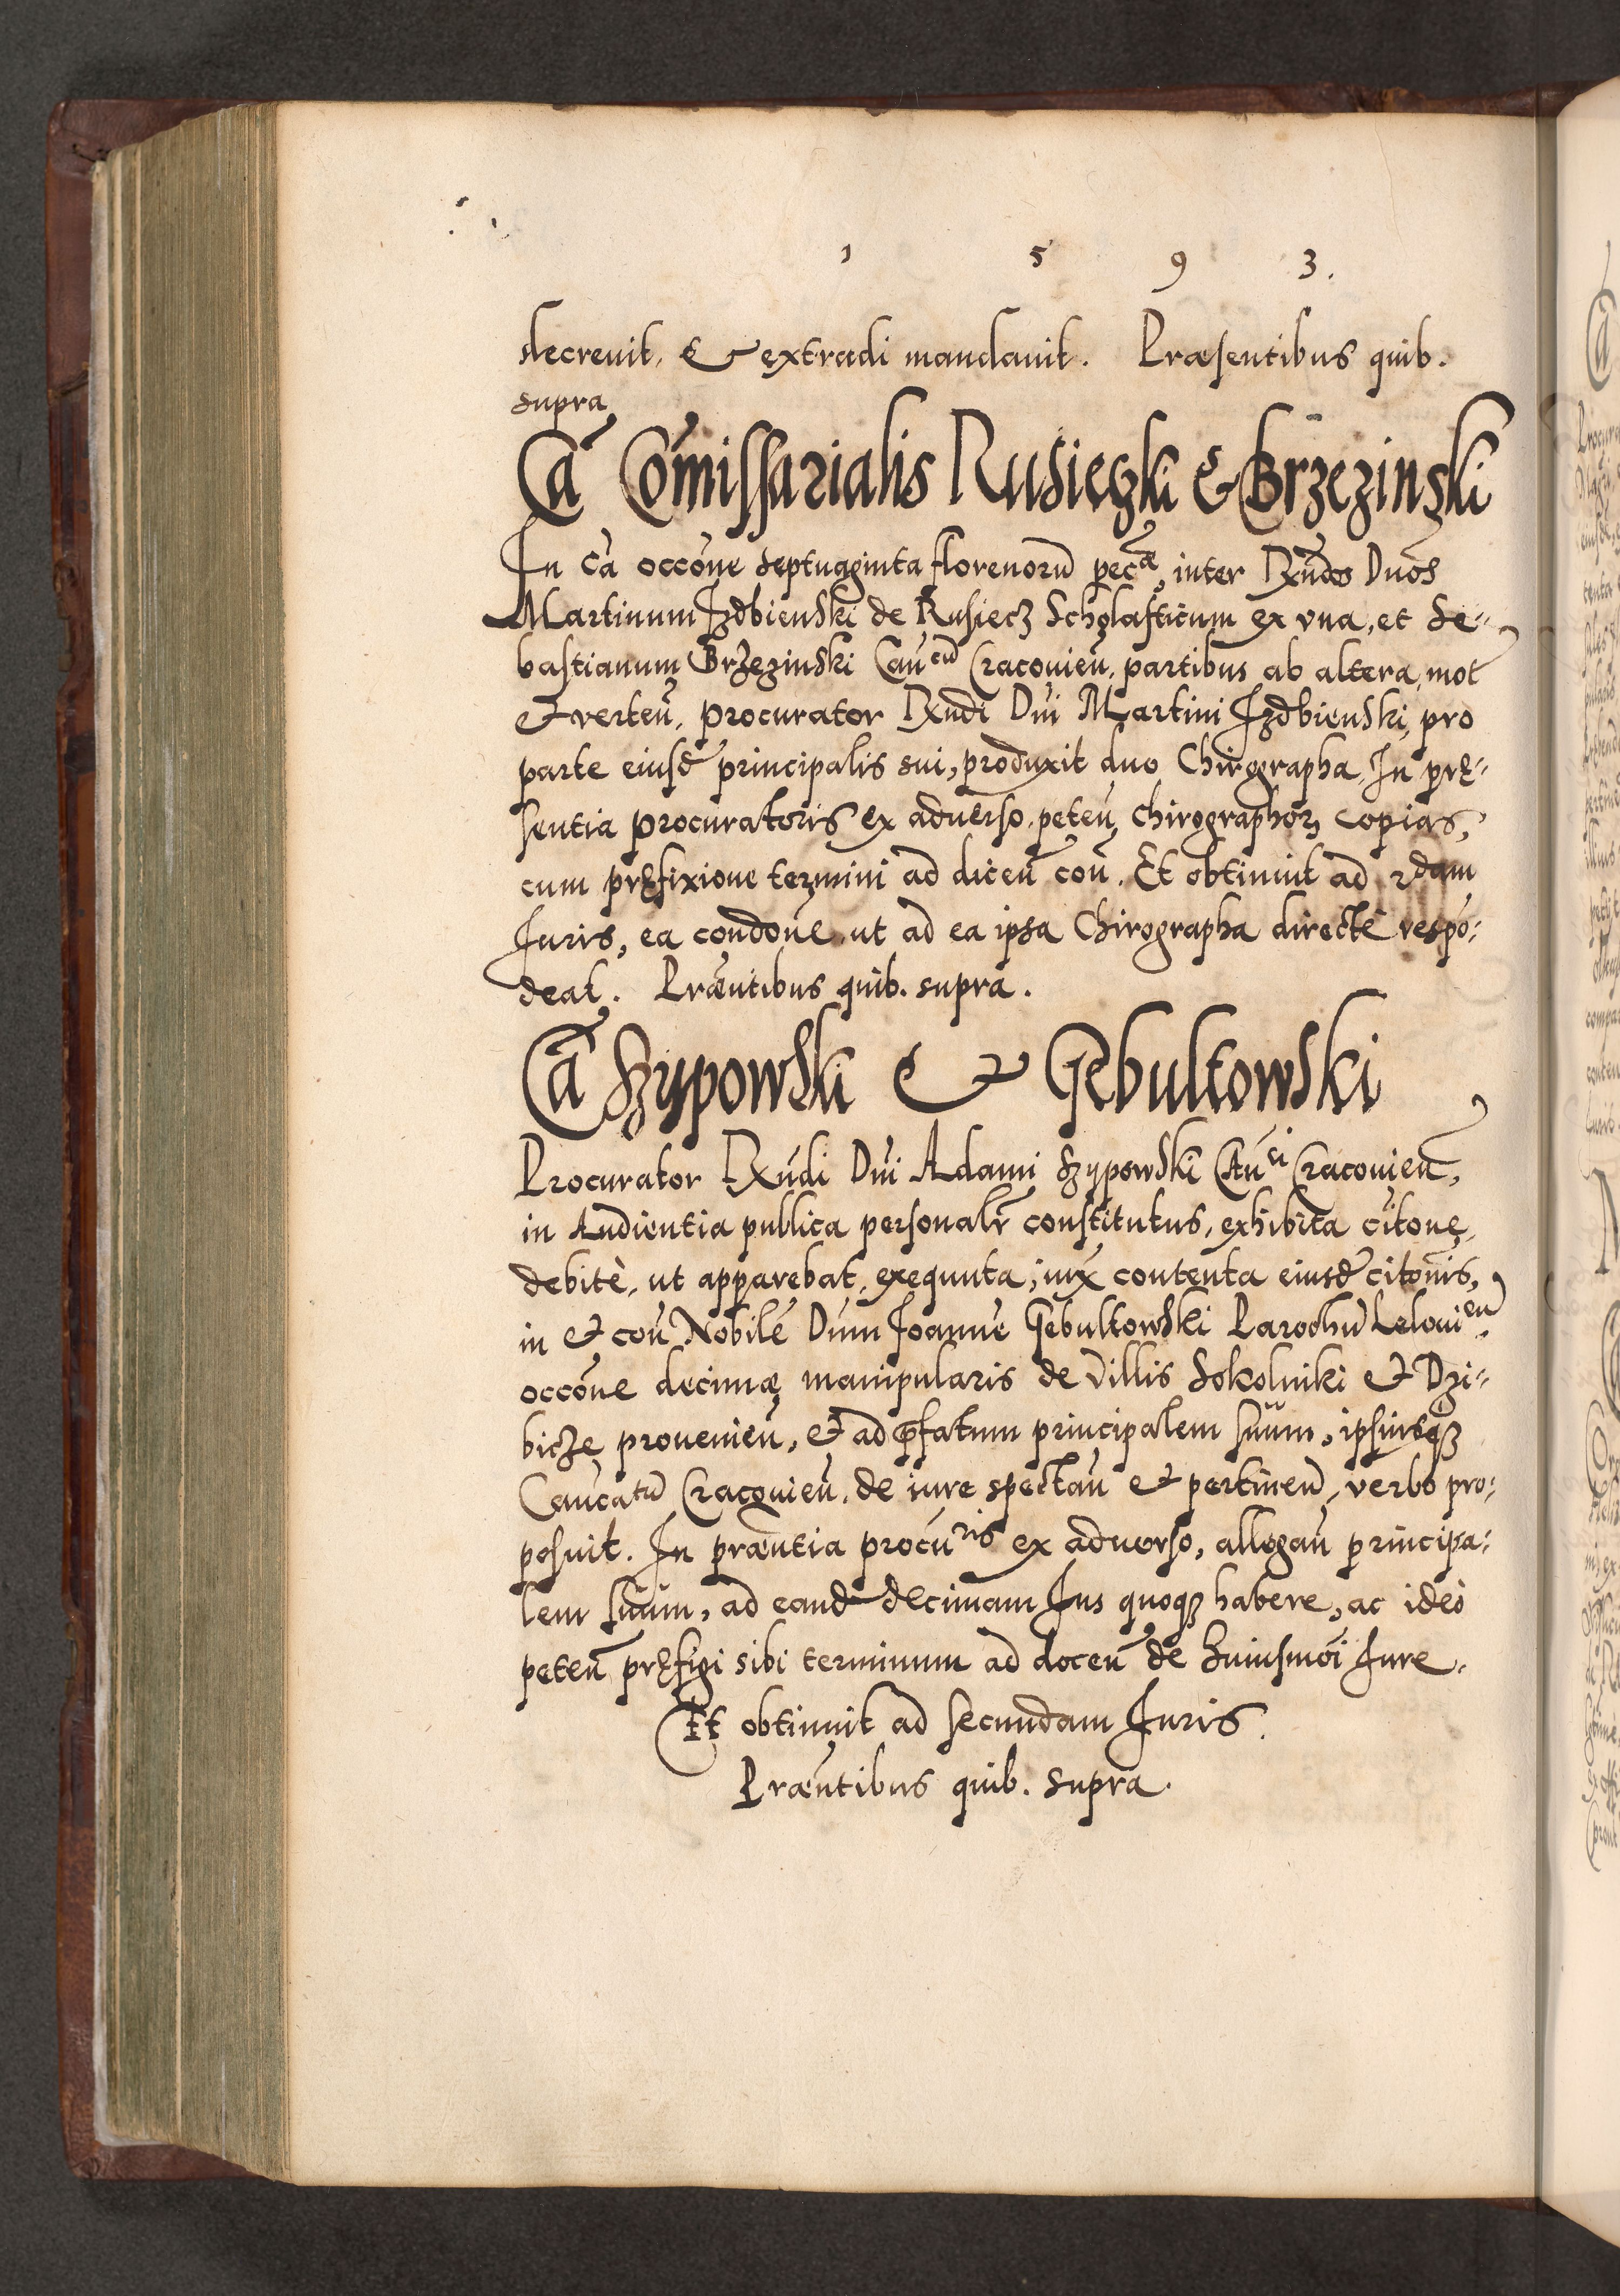 1 5 9 3.
decreuit, & extradi mandauit. Præsentibus quib.
supra
Cā Comissarialis Rusieczki & Brzezinski
In cā occōne septuaginta florenorū pecæ, inter Rxndos Dnōs
Martinum Izdbienski de Rusiecz Scholasticum ex vna, et Se-
bastianum Brzezinski Canᶜᵘ Cracouień. partibus ab altera, mot
& verteń. procurator Rxndi Dni Martini Izdbienski, pro
parte eiusd principalis sui, produxit duo Chirographa, In præ-
sentia procuratoris ex aduerso. peteń Chirographor copias,
cum præfixione termini ad diceń coń. Et obtinuit ad 2dam
Iuris, ea condōne, ut ad ea ipsa Chirographa directè respō-
deat. Præntibus quib. supra.
Cā Szypowski & Gebultowski
Procurator Rxndi Dni Adami Szypowski Cānᶜⁱ Cracouień,
in Audientia publica personalr constitutus, exhibita citōne,
debitè, ut apparebat, exequuta, iux contenta eiusd citōnis,
in & coń Nobilē Dnum Joannē Gebultowski Parochū Lelouieň
occōne decimæ manipularis de villis Sokolniki & Dzi-
bicze prouenień, & ad pfatum principalem suum, ipsiusq
Cancatū Cracouień. de iure spectań & pertineń, verbo pro-
posuit. In præntia procuris ex aduerso, allegań principa-
lem suum, ad eand decimam Ius quoq habere, ac ideo
peteń præfigi sibi terminum ad doceń de huiusmoi Iure.
Et obtinuit ad secundam Iuris.
Præntibus quib. supra.